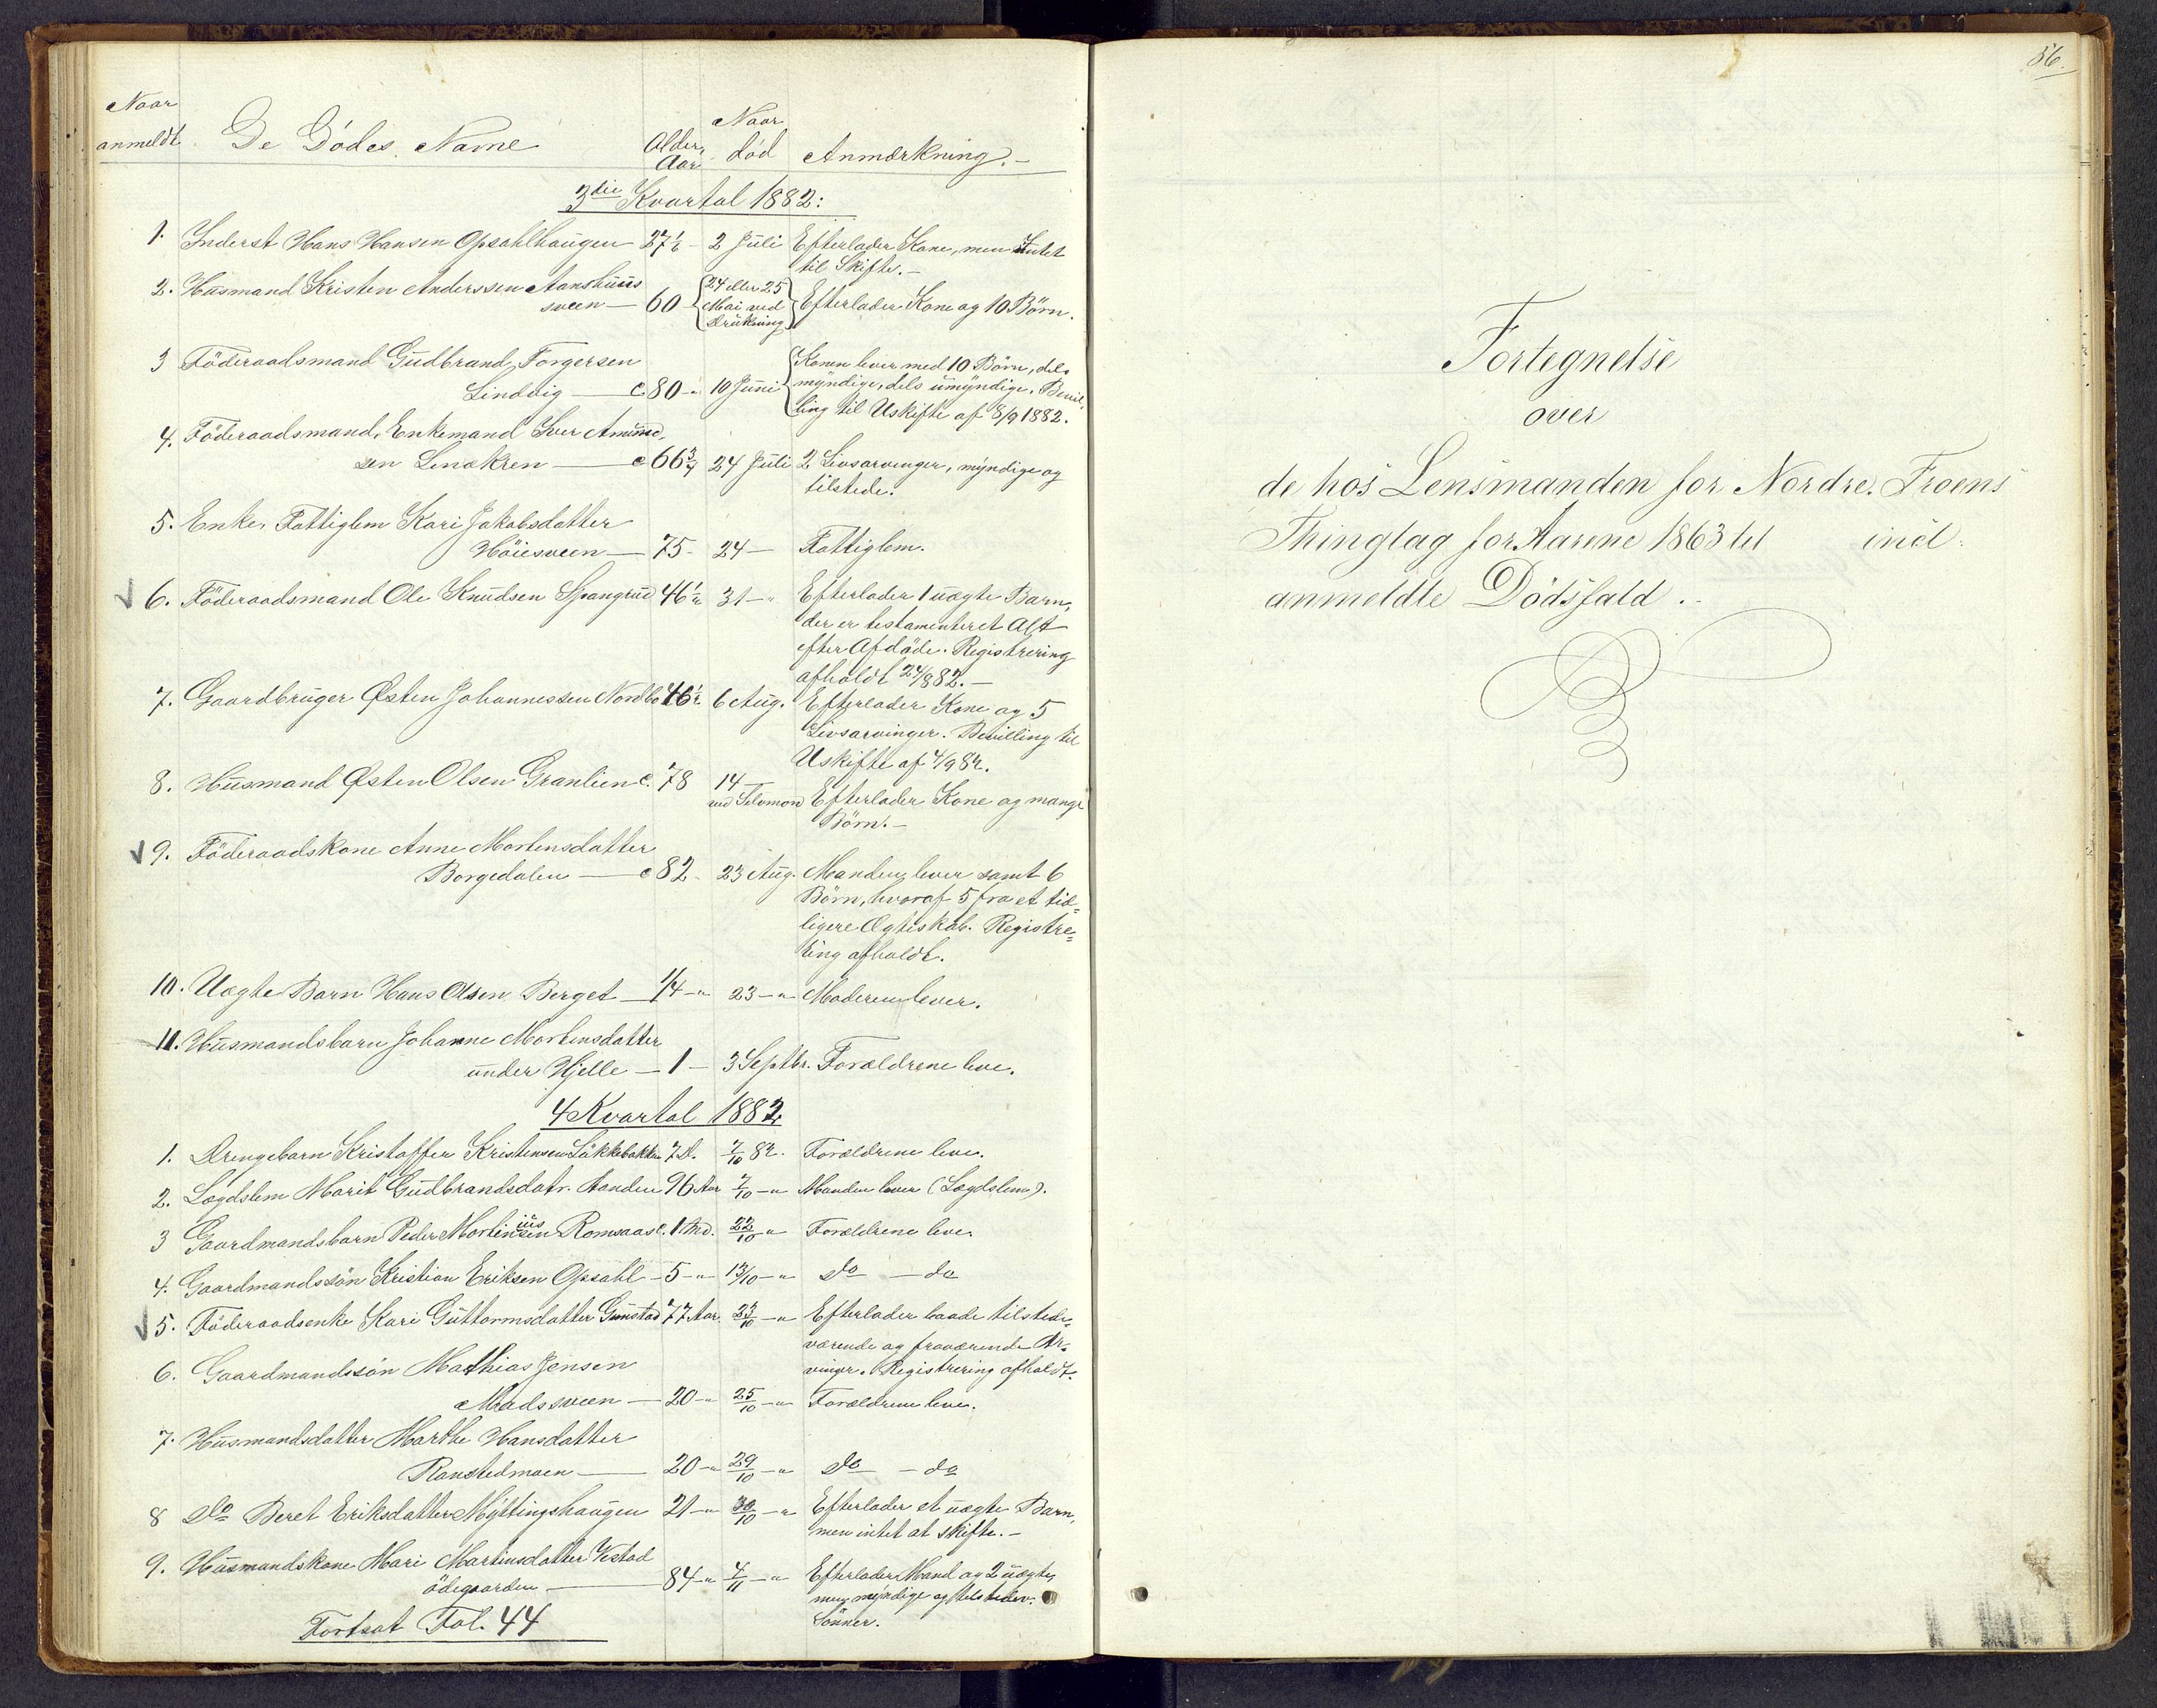 Naar
anmeldt. De Dødes Navne Alder, Aar Naar død Anmærkning.-
3die Kvartal 1882:
1. Inderst Hans Hansen Opsahlhaugen - 27 1/6 - 2 Juli Efterlader Kone, men Intet
til Skifte.-
2. Husmand Kristen Anderssen Aanshuus
sveen - 60 - {24 eller 25 Mai ved Drukning} Efterlader Kone og 10 Börn.
3 Föderaadsmand Gudbrand Torgersen
Lindvig - c. 80 - 10 Juni {Konen lever med 10 Börn, dels
myndige, dels umyndige. Bevil-
ling til Uskifte af 8/9 1882.
4. Föderaadsmand, Enkemand Iver Amund,
sen - c 66 3/4 24 Juli 2 Livsarvinger, myndige og
tilstede.
5. Enke, Fattiglem Kari Jakobsdatter
Höiesveen - 75 - 24 - Fattiglem.
6. Föderaadsmand Ole Knudsen Spangrud 46 1/2 31 - " Efterlader 1 uægte Barn,
der er testamenteret Alt
efter Afdöde. Registrering
afholdt 24/8 82.-
7. Gaardbruger Østen Johannessen Nordbo 46 1/2 6 Aug. Efterlader Kone og 5
Livsarvinger. Bevilling til
Uskifte af 4/9 82.
8. Husmand Østen Olsen Granlien c. 78 14 -
ved Selvmord Efterlader Kone og mange
Börn.-
9. Föderaadskone Anne Mortensdatter
Borgedalen - c 82 - 23 Aug. Manden lever samt 6
Börn, hvoraf 5 fra et tid=
ligere Ægteskab. Registre=
ring afholdt.
10. Uægte Barn Hans Olsen Berget - 1/4 - " 23 - " Moderen lever.
11. Husmandsbarn Johanne Mortensdatter
under Hjelle - 1 - 3 Septbr. Forældrene leve.
4 Kvartal 1882
1. Drengebarn Kristoffer Kristensen Lökkebakken 7 D. 7/10 82. Forældrene leve.
2. Lægdslem Marit Gudbrandsdatr. Aanden 96 Aar 7/10 - " Manden lever (Lægdslem).
3 Gaardmandsbarn Peder Mortinius Romsaas c. 1 Md. 22/10 " Forældrene leve.
4. Gaardmandssön Kristian Eriksen Opsahl - 5 - " 13/10 - " do - do
5. Föderaadsenke Kari Guttormsdatter Gunstad 77 Aar. 23/10 - " Efterlader baade tilstede,
værende og fraværende Ar-
vinger. Registrering afholdt.
6. Gaardmandssön Mathias Jensen
Madssveen - 20 - " 25/10 - " Forældrene leve.
7. Husmandsdatter Marthe Hansdatter
Ranstedmoen - 20 - " 29/10 - " do - do
8 do Beret Eriksdatter Myttingshaugen 21 - " 30/10 - " Efterlader et uægte Barn,
men intet at skifte.-
9. Husmandskone Mari Martinsdatter Vestad
ödegaarden - 84 - " 4/11 - " Efterlader Mand og 2 uægte,
men myndige og tilstedev.
Sönner.
Fortsat Fol. 44
56.
Fortegnelse
over
de hos Lensmanden for Nordre Froens
Thinglag for Aarene 1863 til incl.
anmeldte Dödsfald.